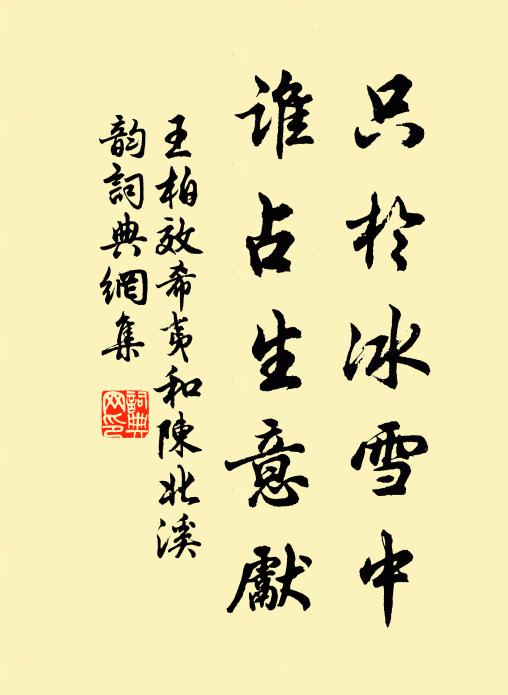 只於冰雪中
誰占生意獻
王柏效希夷和陳北溪
韵詞典網集
詞典网印